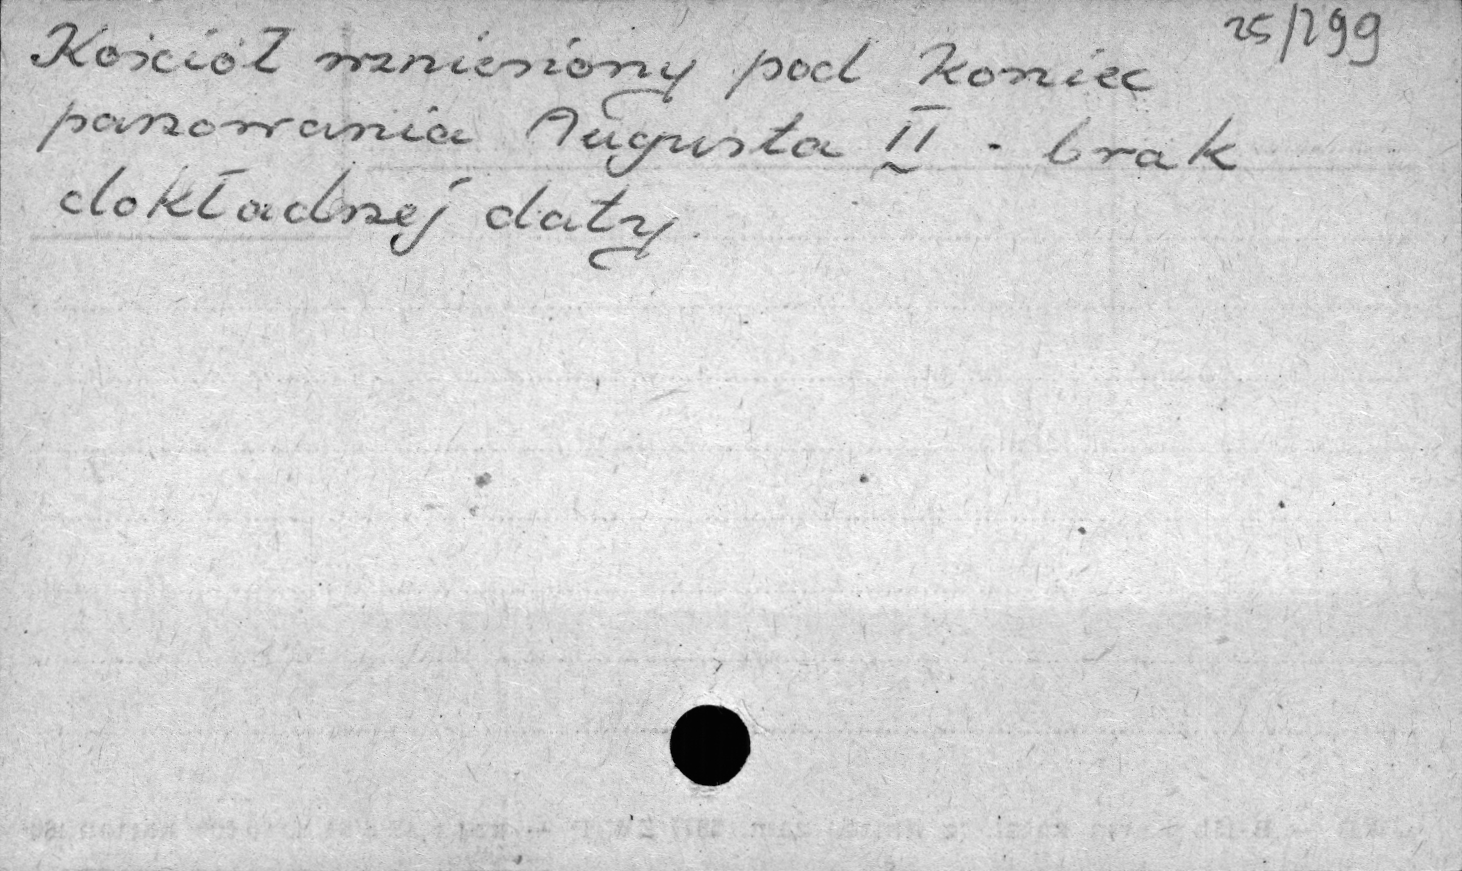 25/299
Kościół wzniesiony pod koniec
panowania Augusta II - brak
dokładnej daty